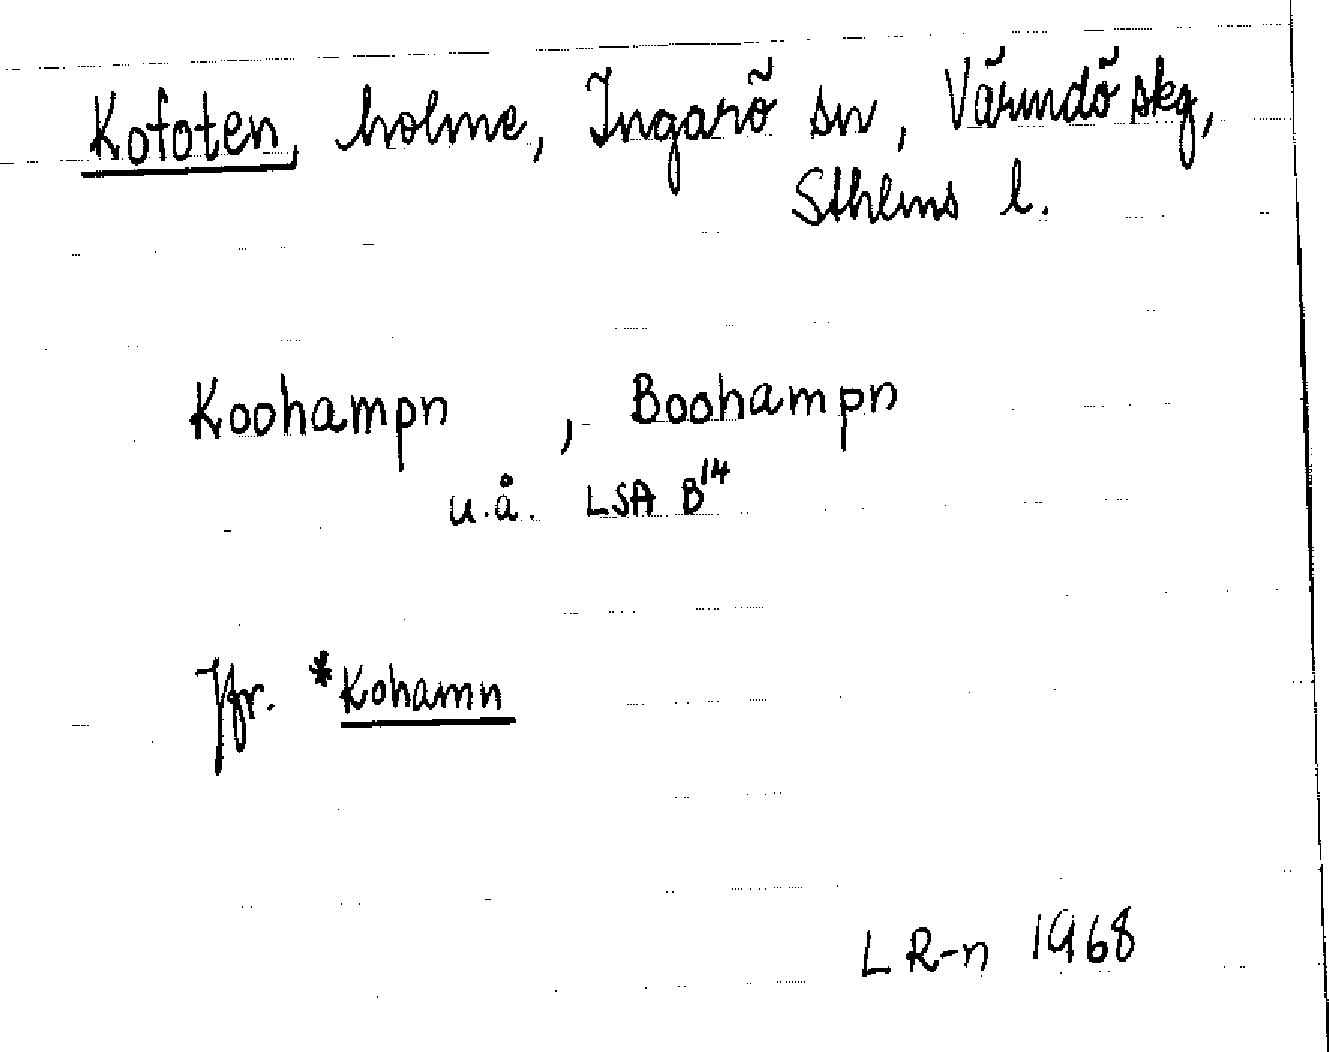 Kofoten, holme, Ingarö sn, Värmdö skg,
Sthlms l.
Koohampn , Boohampn
u.å. LSA B14
Jfr. *Kohamn
L R-n 1968